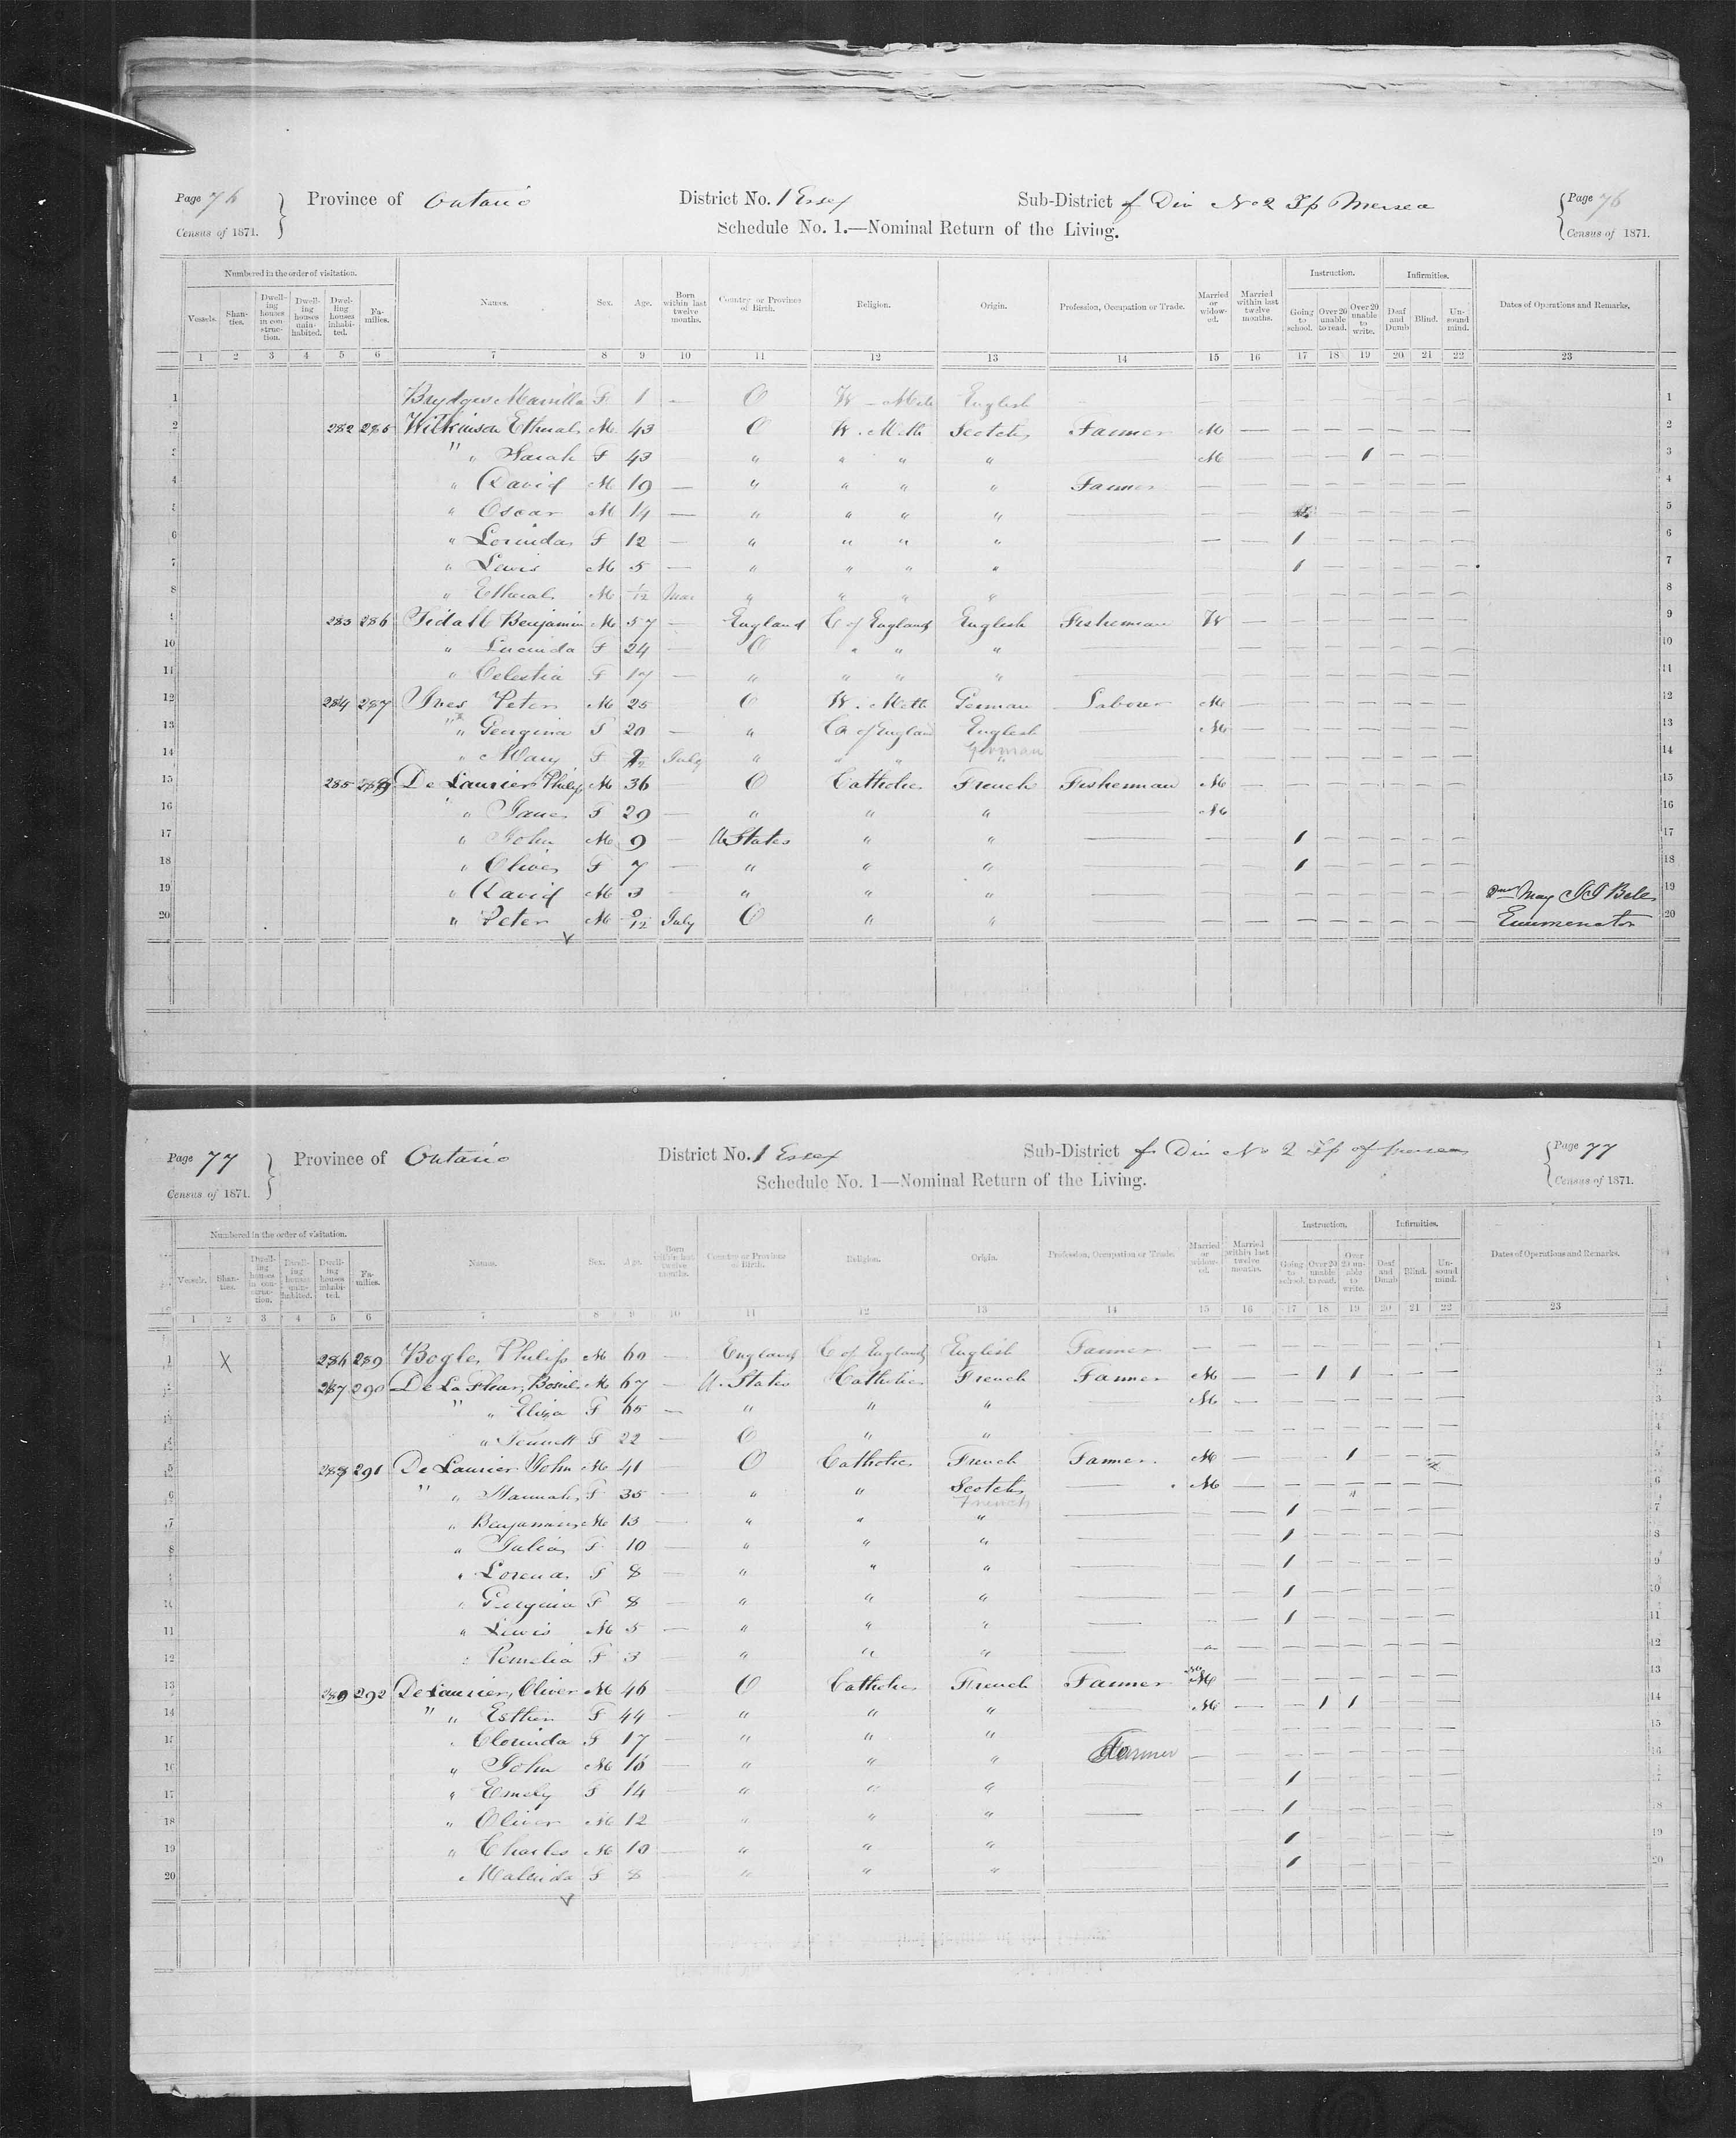 Page 76 Province of Ontario District No. 1 Essex Sub-District f Div No 2 Tp Mersea Page 76
Census of 1871. Schedule No. 1.—Nominal Return of the Living. Census of 1871.
Numbered in the order of visitation. Instruction. Infirmities.
Vessels. Shanties. Dwelling houses in construction. Dwelling houses uninhabited. Dwelling houses inhabited. Families. Names. Sex. Age. Born within last twelve months. Country or Province of Birth. Religion. Origin. Profession, Occupation or Trade. Married or widowed. Married within last twelve months. Going to school. Over 20 unable to read. Over 20 unable to write. Deaf and Dumb Blind. Unsound mind. Dates of Operations and Remarks.
1 2 3 4 5 6 7 8 9 10 11 12 13 14 15 16 17 18 19 20 21 22 23
1 Brydges F 1 — O W. Meth English 1
2 282 285 Wilkinson M 43 — O W. Meth Scotch Farmer M — — — — — — — 2
3 " " Sarah F 43 — " " " " — M — — — 1 — — — 3
4 " David M 19 — " " " " Farmer — — — — — — — — 4
5 " Oscar M 14 — " " " " — — — — — — — — 5
6 " Lorinda F 12 — " " " " — — — 1 — — — — — 6
7 " Lewis M 5 — " " " " — — — 1 — — — — — 7
8 " M 1/12 Mar " " " " — — — — — — 8
9 283 286 Tidall Benjamin M 57 — England C of England English Fisherman W — — — — — — — 9
10 " Lucinda F 24 — O " " " — — — — — — — — — 10
11 " Celestia F 17 — " " " " — — — — — — — — — 11
12 284 287 Ives Peter M 25 O W. Meth German Laborer M — — — — — — — 12
13 " Georgina F 20 — " C of England English — M — — — — — — — 13
14 " Mary F 9/12 July " " " German — — — — — — — — 14
15 285 288 De Laurier Philip M 36 — O Catholic French Fisherman M — — — — — — — 15
16 " Jane F 29 — " " " — M — — — — — — 16
17 " John M 9 — U States " " — — — 1 — — — — — 17
18 " Olive F 7 — " " " — — — 1 — — — — — 18
19 " David M 3 — " " " — — — — — — — — — 2nd May 19
20 " Peter M 9/12 July O " " — — — — — — — — — Enumerator 20
Page 77 Province of Ontario District No. 1 Essex Sub-District f Div No 2 Tp of Mersea Page 77
Census of 1871. Schedule No. 1—Nominal Return of the Living. Census of 1871.
Numbered in the order of visitation. Instruction. Infirmities.
Vessels. Shanties. Dwelling houses in construction. Dwelling houses uninhabited. Dwelling houses inhabited. Families. Names. Sex. Age. Born within last twelve months. Country or Province of Birth. Religion. Origin. Profession, Occupation or Trade. Married or widowed. Married within last twelve months. Going to school. Over 20 unable to read. Over 20 unable to write. Deaf and Dumb Blind. Unsound mind. Dates of Operations and Remarks.
1 2 3 4 5 6 7 8 9 10 11 12 13 14 15 16 17 18 19 20 21 22 23
1 X 286 289 Bogle Philip M 60 — England C of England English Farmer — — — — — — — — 1
2 287 290 De La Fleur, M 67 — U. States Catholic French Farmer M — — 1 1 — — — 2
3 " " Eliza F 65 — " " " — M — — — — — — 3
4 " F 22 — O " " — — — — — — — — 4
5 288 291 De Laurier John M 41 — O Catholic French Farmer M — — — 1 — — 5
6 " " Hannah F 35 — " " Scotch — M — — — — — — 6
7 " Benjamin M 13 — " " French " — — — 1 — — — — — 7
8 " Julia F 10 — " " " — — — 1 — — — — — 8
9 " Lorena F 8 — " " " — — — 1 — — — — — 9
10 " Georgina F 8 — " " " — — — 1 — — — — — 10
11 " Lewis M 5 — " " " — — — 1 — — — — — 11
12 " Pemelia F 3 — " " " — — — — — — — — 12
13 289 292 De Laurier, Oliver M 46 — O Catholic French Farmer M — — — — — — — 13
14 " " Esther F 44 — " " " — M — — 1 1 — — — 14
15 " Clorinda F 17 — " " " — — — — — — — — 15
16 " John M 16 — " " " Farmer — — — — — — — — 16
17 " Emely F 14 — " " " 1 — — — — — 17
18 " Oliver M 12 " " " — — — 1 — — — — — 18
19 " Charles M 10 — " " " 1 — — — — — 19
20 " Malinda F 8 — " " " 1 — — — — 20